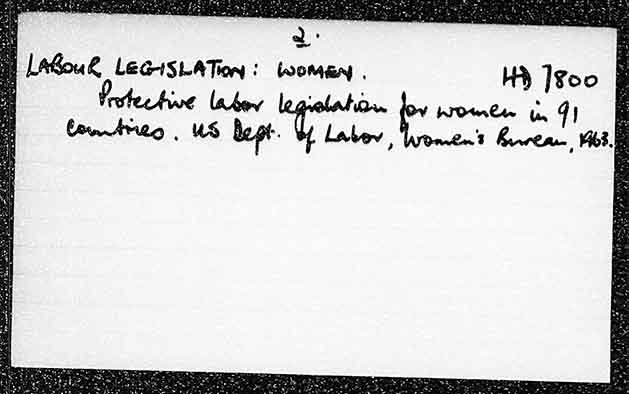 2.
LABOUR LEGISLATION: WOMEN. HD 7800
Protective labor legislation for women in 91
countries. US Dept. of Labor, Women's Bureau, 1963.